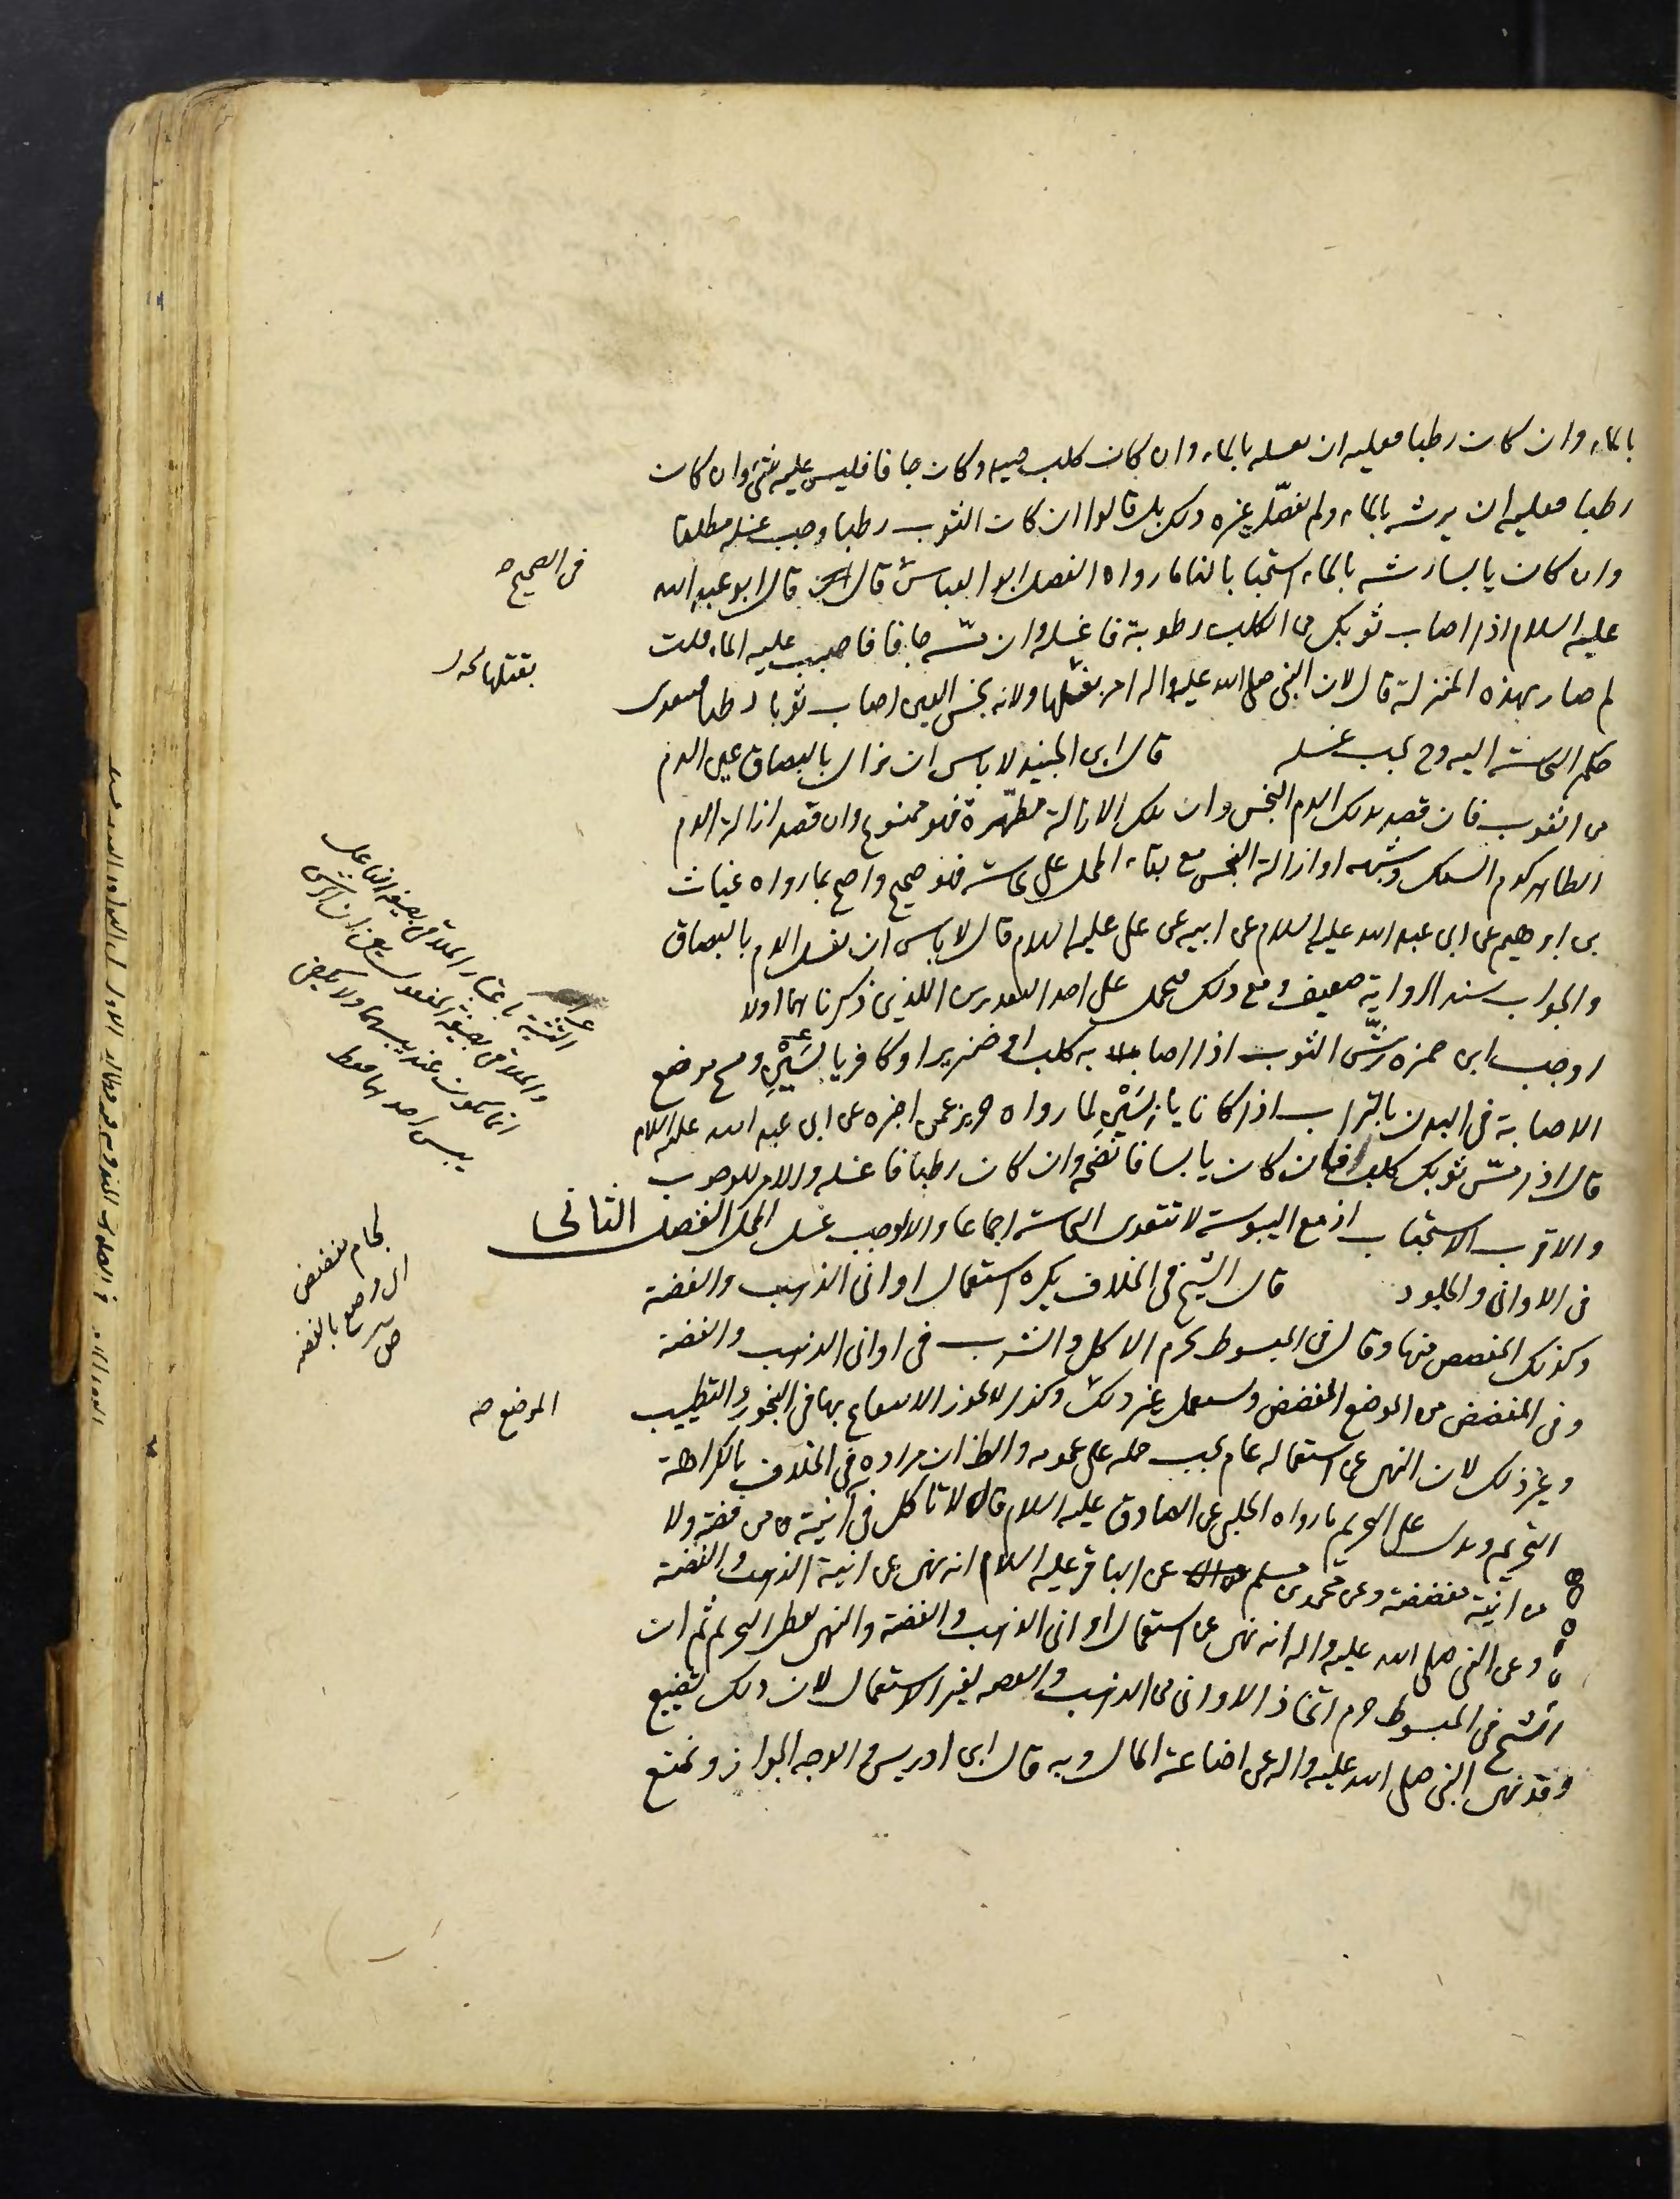 بالماء وان كان رطبا فعليه ان يغسله بالماء وان كان كلب صيد وكان جافا فليس عليه شئ وان كان
رطبا فعليه ان يرشه بالماء ولم يفصل غيره ذلك بل قالوا ان كان الثوب رطبا وجب غسله مطلقا
وان كان يابسا رشه بالماء استحبابا لنا ما رواه الفضل ابو العباس قال قال ابو عبد الله
عليه السلام اذا اصاب ثوبك من الكلب رطوبة فاغسله وان مسّه جافا فاصبب عليه الماء قلت
لم صار بهذه المنزلة قال لان النبي صلى الله عليه واله امر بقتلها ولانه نجس العين اصاب ثوبا رطبا فتعدى
حكم النجاسة اليه وح يجب غسله قال ابن الجنيد لا باس ان يزال بالبصاق عين الدم
من الثوب فان قصد بذلك الدم النجس وان تلك الازالة مطهّرة فهو ممنوع وان قصد ازالة الدم
الطاهر كدم السمك وشبهه او ازالة النجس مع بقاء المحل على نجاسته فهو صحيح واحتج بما رواه غياث
بن ابرهيم عن ابي عبد الله عليه السلام عن ابيه عن على عليه السلام قال لا باس ان يغسل الدم بالبصاق
والجواب سند الرواية ضعيف ومع ذلك فيحمل على احد التقديرين اللذين ذكرناهما اولا
اوجب ابن حمزه رشّ الثوب اذا اصابه كلب او خنزير او كافر يابسَيْنِ ومسح موضع
الاصابة في البدن بالتراب اذا كانا يابسَيْنِ لما رواه حريز عمن اخبره عن ابي عبد الله عليه السلام
قال اذا مسّ ثوبك كلب فان كان يابسا فانضحه وان كان رطبا فاغسله والامر للوجوب
والاقرب الاستحباب اذ مع اليبوسة لا تتعدى النجاسة اجماعا والا لوجب غسل المحل الفصل الثانى
فى الاوانى والجلود قال الشيخ في الخلاف يكره استعمال اوانى الذهب والفضة
وكذلك المفضض منها وقال في المبسوط يحرم الاكل والشرب في اوانى الذهب والفضة
وفى المفضض من الموضع المفضض ويستعمل غير ذلك وكذا لا يجوز الانتفاع بها في البخور والتطييب
وغير ذلك لان النهى عن استعماله عام يجب حمله على عمومه والظ ان مراده في الخلاف بالكراهة
التحريم ويدل على التحريم ما رواه الحلبي عن الصادق عليه السلام قال لا تاكل في آنية من فضة ولا
من آنية مفضضة وعن محمد بن مسلم عن الباقر عليه السلام انه نهى عن انية الذهب والفضة
وعن النبي صلى الله عليه واله انه نهى عن استعمال اوانى الذهب والفضة والنهى يعطى التحريم ثم ان
الشيخ في المبسوط حرم اتخاذ الاوانى من الذهب والفضة لغير الاستعمال لان ذلك تضييع
وقد نهى النبي صلى الله عليه واله عن اضاعة المال وبه قال ابن ادريس والوجه الجواز ونمنع
في الصحيح
بقتلها
التثنية باعتبار الملاقى بصيغة الفاعل
والملاقى بصيغة المفعول يعنى ان الرش
انما يكون عند يبسهما ولا يكفى
يبس احدهما فقط
لجام مفضض
اى مرصع بالفضه
ص
الموضع